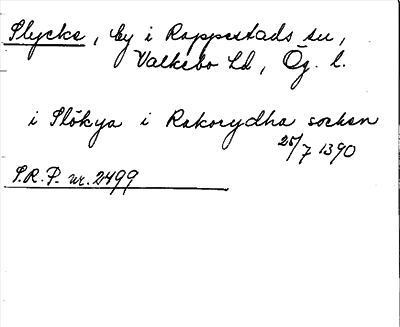 Slycke, by i Rappestads sn,
Valkebo hd, Ög. l.
i Slökya i Rakorydha socken
25/7 1390
S.R.P. nr. 2499